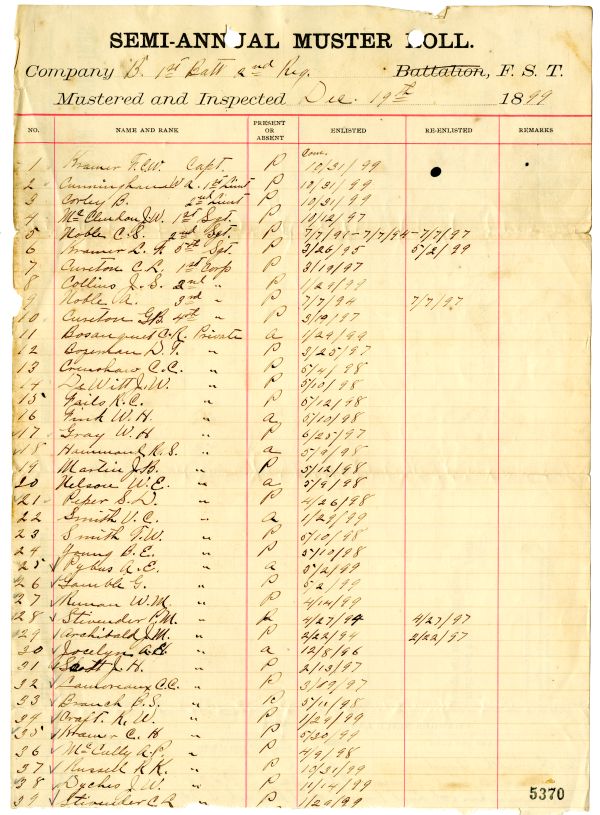 SEMI-ANNUAL MUSTER ROLL.
Company B. 1st Batt 2nd Reg. Battalion, F. S. T.
Mustered and Inspected Dec. 19th 1899
NO. NAME AND RANK PRESENT OR ABSENT ENLISTED RE-ENLISTED REMARKS
Com.
1 Kramer F.C.W. Capt. P 10/31/99
2 Cunningham W.A. 1st Lieut P 10/31/99
3 Corley B. 2nd Lieut P 10/31/99
4 McClenhan J.W. 1st Sgt. P 10/12/97
5 Noble C.S. 2nd Sgt. P 7/7/91-7/7/94-7/7/97
6 Kramer L. 5th Sgt. P 3/26/95 5/2/99
7 Cureton C.L. 1st Corp P 3/19/97
8 Collins J.S. 2nd " P 1/29/99
9 Noble A. 3rd " P 7/7/94 7/7/97
10 Cureton G.B. 4th " P 3/19/97
11 Bosanquet C.R. Private a 1/29/99
12 Bozeman D.F. " P 3/25/97
13 Crenshaw C.C. " P 5/4/98
14 DeWitt J.W. " P 5/10/98
15 Fails R.C. " P 5/12/98
16 Fink W.H. " a 5/10/98
17 Gray W.H " P 6/25/97
18 Hammond R.S. " a 5/9/98
19 Martin J.B. " P 5/12/98
20 Nelson W.E. " a 5/9/98
21 Piper S.D. " P 4/26/98
22 Smith V.C. " a 1/29/99
23 Smith F.W. " P 5/10/98
24 Young B.E. " P 5/10/98
25 Pybus A.E. " a 5/2/99
26 Lamble G. " P 5/2/99
27 W.M. " P 4/14/99
28 Stivender P.M. " P 4/27/94 4/27/97
29 Archibald J.M. " P 2/22/94 2/22/97
30 Jocelyn A.H. " a 12/8/96
31 Scott J.H. " P 2/13/97
32 Lamoreaux C.C. " P 3/19/97
33 Branch B.S. " P 5/11/98
34 Craft R.W. " P 1/29/99
35 Kramer C.H " P 5/30/99
36 McCully A.P. " P 4/9/98
37 Russell R.K. " P 10/31/99
38 Dyches J.W. " P 11/14/99
39 Stivender C.R. " P 1/29/99
5370